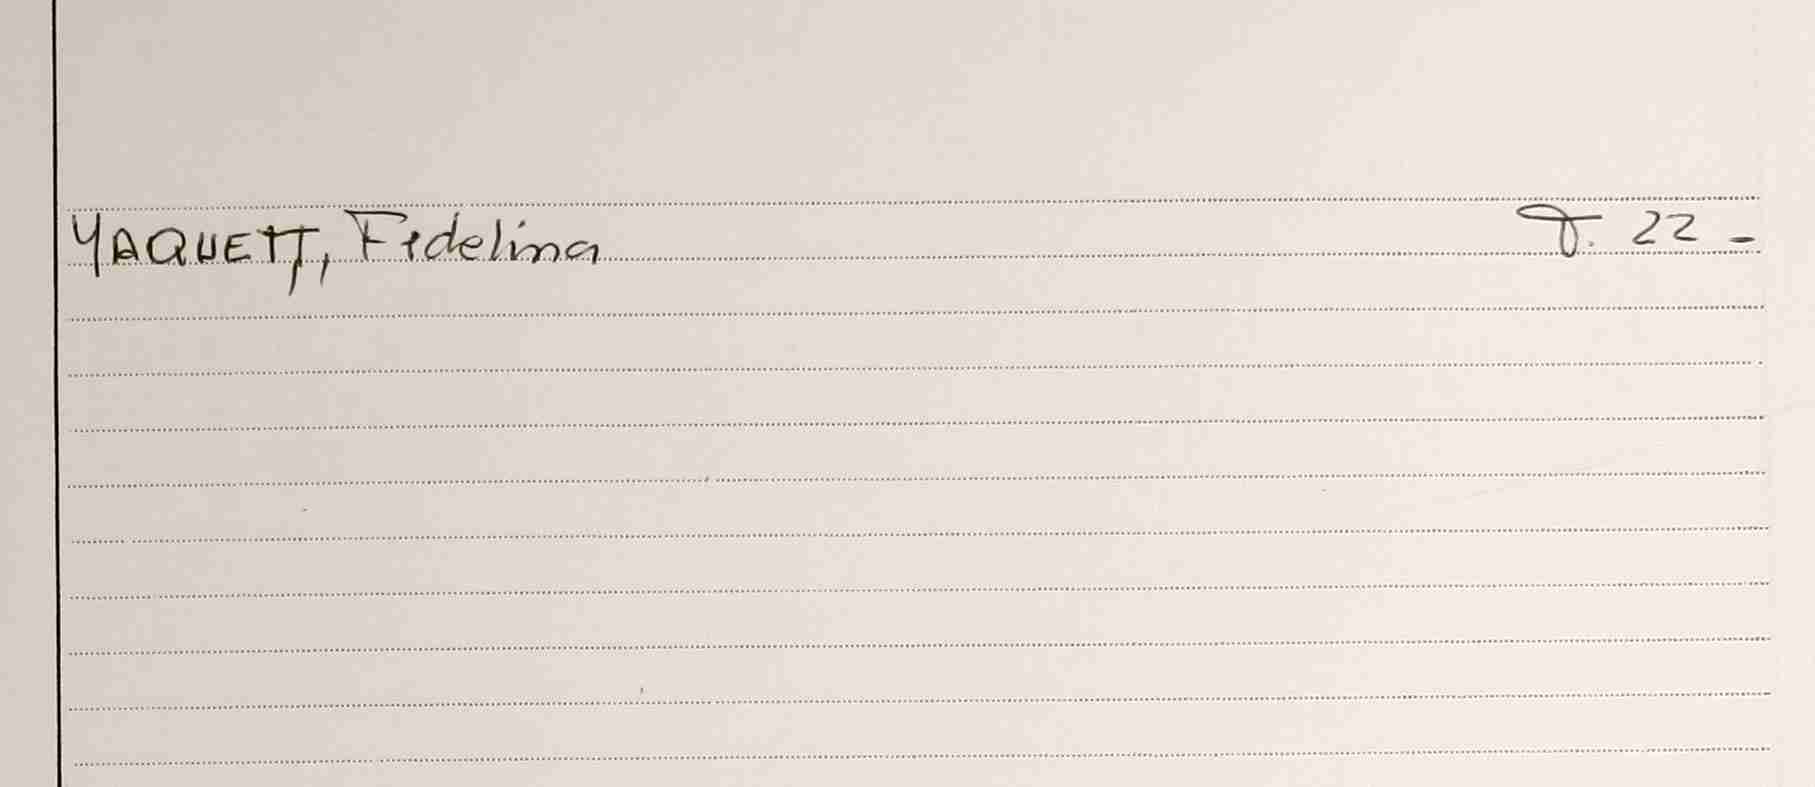 YAQUETT, Fidelina T. 22 -